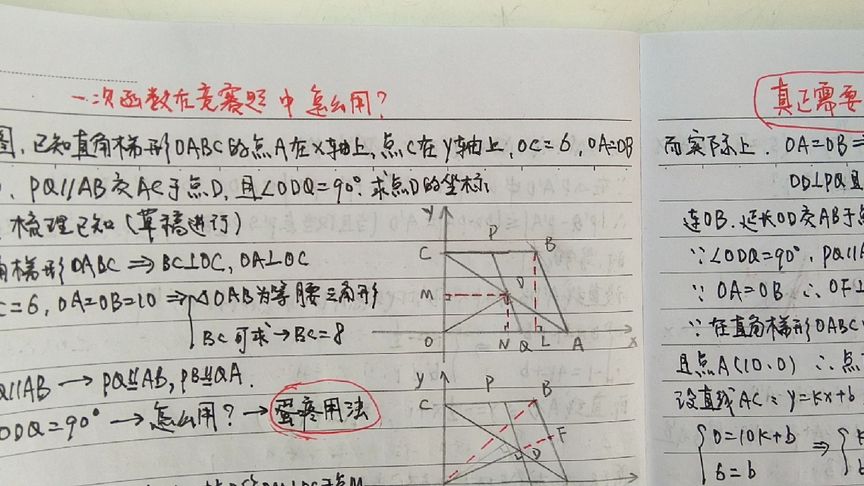 一次函数在竞赛题中怎么用?
图,已知直角梯形OABC的点A在x轴上,点C在y轴上,OC=6,OA=OB
,PQ∥AB交AC于点D,且∠ODQ=90°求点D的坐标
梳理已知(草稿进行)
角梯形OABC⇒BC⊥OC,OA⊥OC
C=6,OA=OB=10⇒{△OAB为等腰三角形
BC可求→BC=8
Q∥AB→PQ≌AB,PB≌QA.
ODQ=90°→怎么用?→蛋疼用法
y
P
C
B
M
D
O
N
Q
L
A
x
y
P
C
B
F
D
真正需要
而实际上.OA=OB=
OD⊥PQ且
连OB.延长OD交AB于点
∵∠ODQ=90°.PQ∥A
∵OA=OB∴OF⊥
∵在直角梯形OABC
且点A(10,0)∴点
设直线AC:y=kx+b
{0=10k+b⇒
6=b